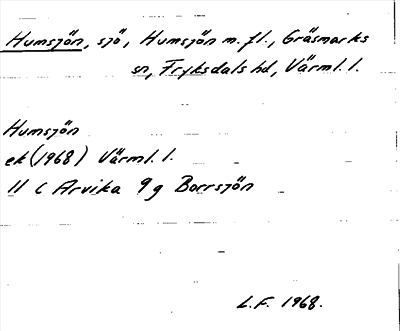 Humsjön, sjö, Humsjön m.fl., Gräsmarks
sn, Fryksdals hd, Värml. l.
Humsjön
ek (1968) Värml. l.
11 C Arvika 9g Borrsjön
L.F. 1968.